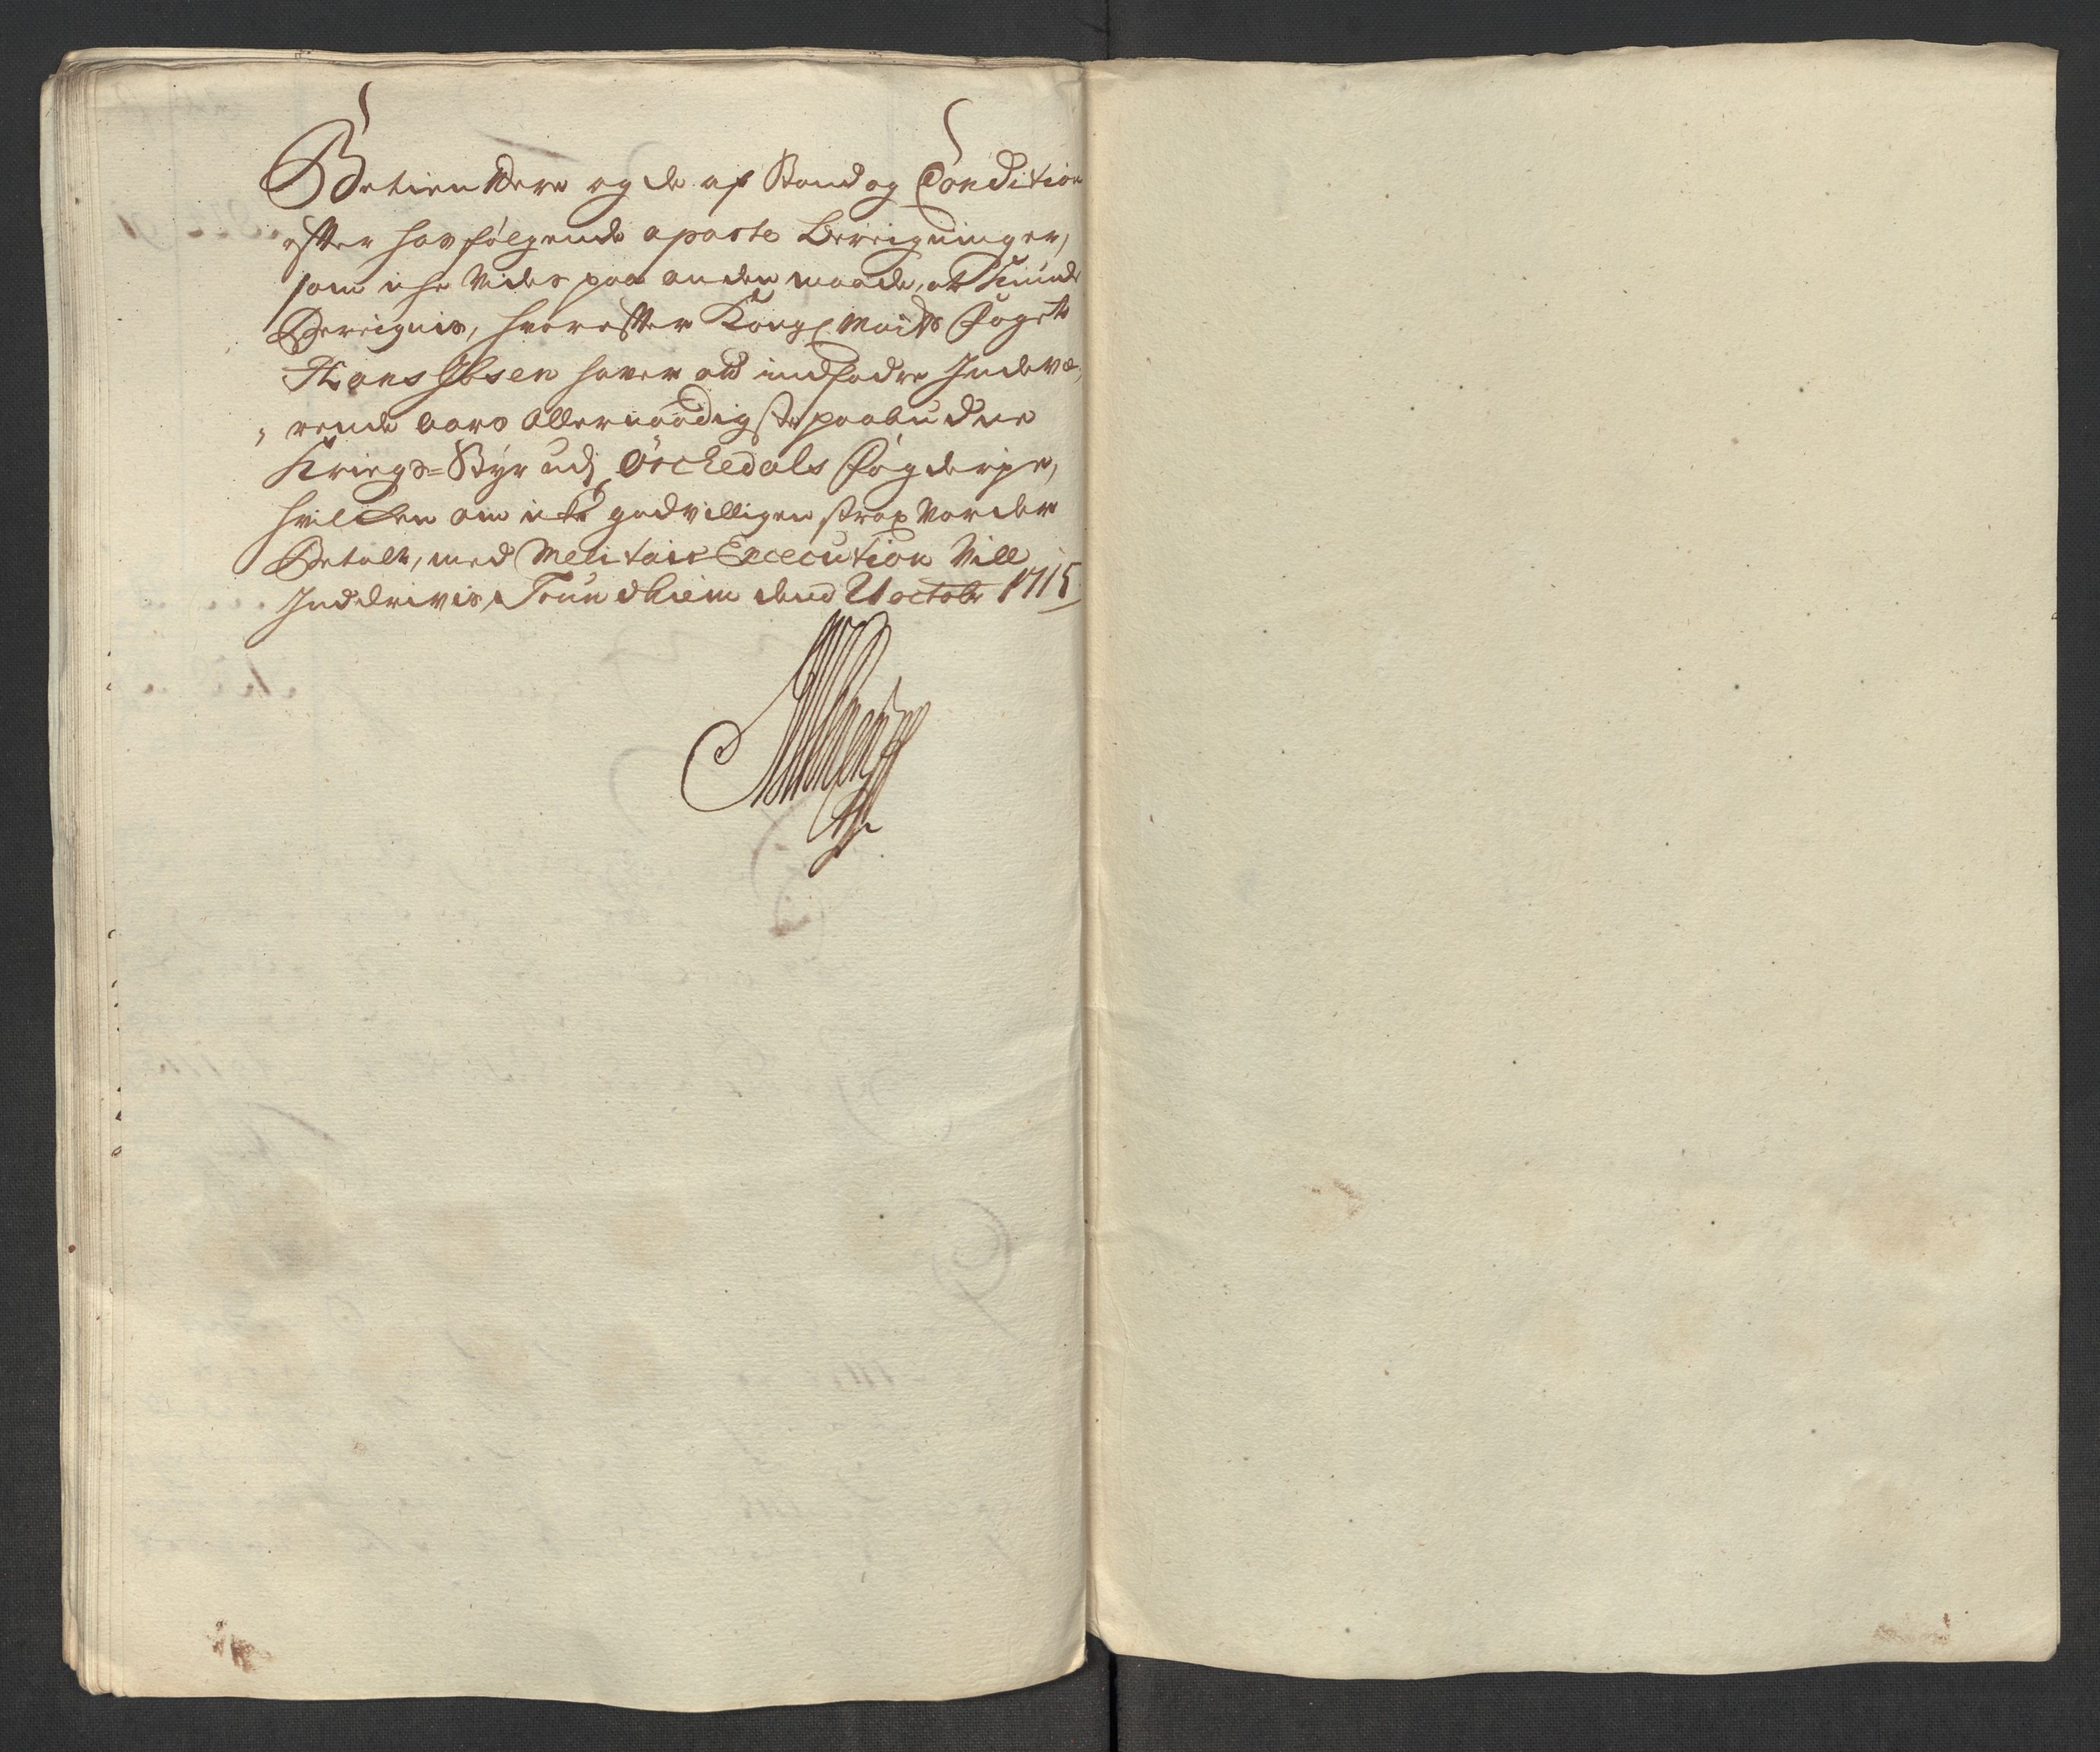 Betienddere og de af Stand og Condition
efter hosfølgende aparte Bereigninger,
som iche Vides paa anden maade, at kunde
Bereignis, hvorefter Kongl Maÿts Foget
Hans Ibsen haver at indfodre Indevæ,,
,,rende Aars Allernaadigste paabudne
Kriegs-Styr udj Örchedals Fogderije,
hvilcken om iche godvilligen strax Vorder
Betalt, med Melitair Execution Vill
Inddrives, Trundhiem dend 21 octobr 1715